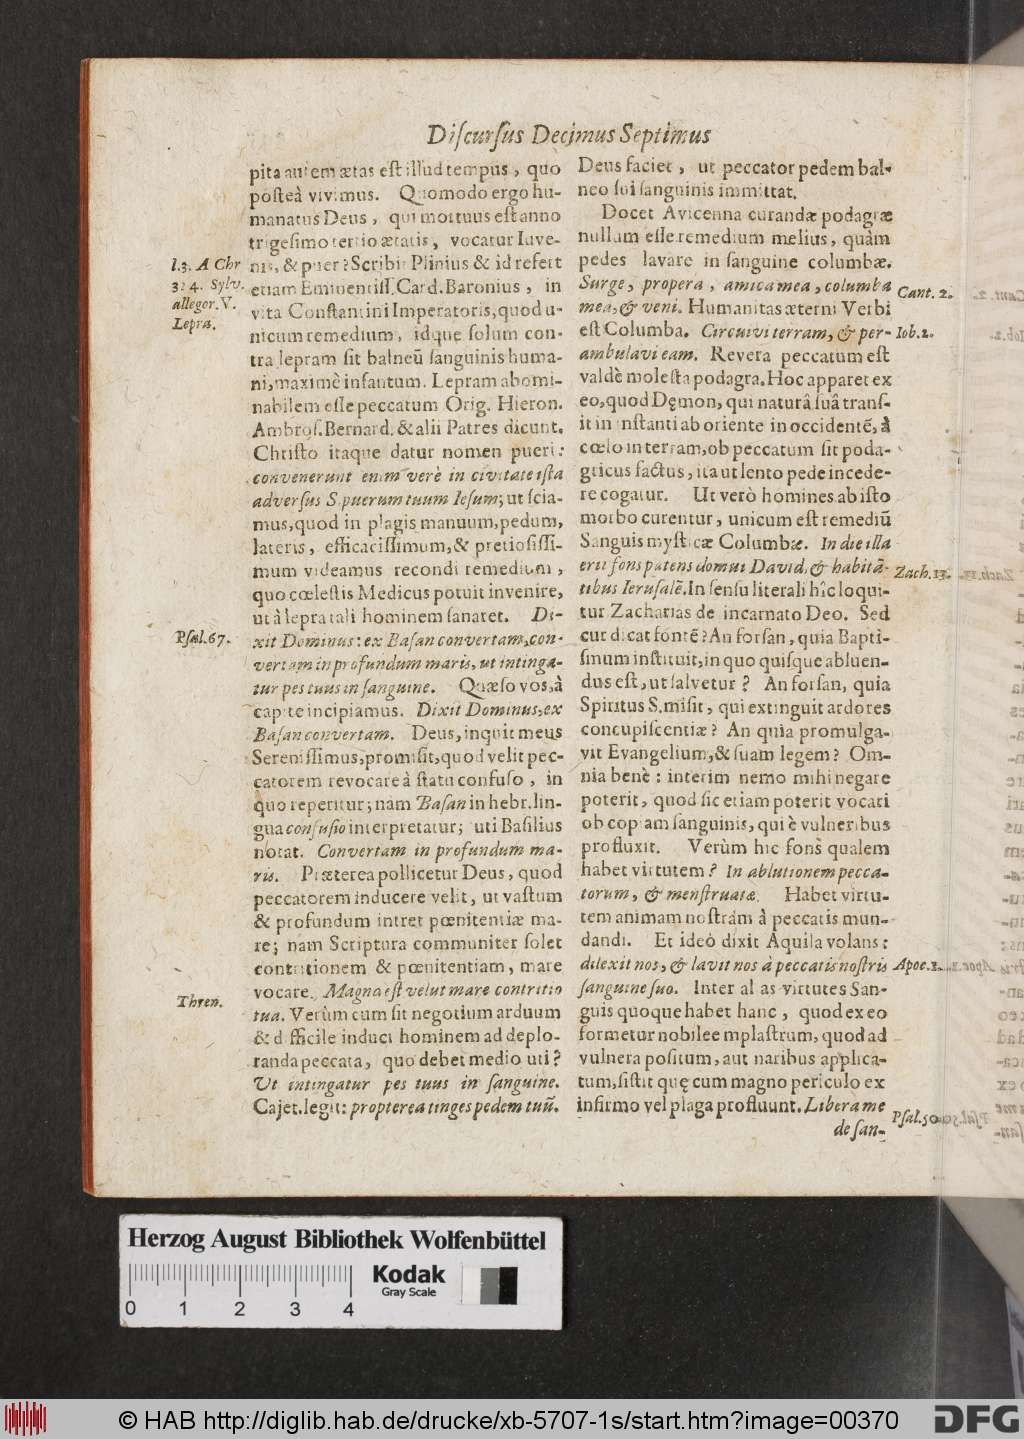 Discursus Decimus Septimus
pita autem ætas est illud tempus, quo
posteà vivimus. Quomodo ergo hu-
manatus Deus, qui mortuus est anno
trigesimo tertio ætatis, vocatur Iuve-
nis, & puer? Scribit Plinius & id refert
etiam Eminentiss. Card. Baronius, in
vita Constantini Imperatoris, quod u-
nicum remedium, idque solum con-
tra lepram sit balneū sanguinis huma-
ni, maximè infantum. Lepram abomi-
nabilem esse peccatum Orig. Hieron.
Ambros. Bernard. & alii Patres dicunt.
Christo itaque datur nomen pueri:
convenerunt enim verè in civitate ista
adversus S. puerum tuum Iesum; ut scia-
mus, quod in plagis manuum, pedum,
lateris, efficacissimum, & pretiosissi-
mum videamus recondi remedium,
quo cœlestis Medicus potuit invenire,
ut à lepra tali hominem sanaret. Di-
xit Dominus: ex Basan convertam, con-
vertam in profundum maris, ut intinga-
tur pes tuus in sanguine. Quæso vos, à
capite incipiamus. Dixit Dominus, ex
Basan convertam. Deus, inquit meus
Serenissimus, promisit, quod velit pec-
catorem revocare à statu confuso, in
quo reperitur; nam Basan in hebr. lin-
gua confusio interpretatur; uti Basilius
notat. Convertam in profundum ma-
ris. Præterea pollicetur Deus, quod
peccatorem inducere velit, ut vastum
& profundum intret pœnitentiæ ma-
re; nam Scriptura communiter solet
contritionem & pœnitentiam, mare
vocare. Magna est velut mare contritio
tua. Verùm cum sit negotium arduum
& difficile induci hominem ad deplo-
randa peccata, quo debet medio uti?
Ut intingatur pes tuus in sanguine.
Cajet. legit: propterea tinges pedem tuū.
l.3. A Chr
314. Sylv.
allegor. V.
Lepra.
Psal. 67.
Thren.
Deus faciet, ut peccator pedem bal-
neo sui sanguinis immittat.
Docet Avicenna curandæ podagræ
nullum esse remedium melius, quàm
pedes lavare in sanguine columbæ.
Surge, propera, amica mea, columba
mea, & veni. Humanitas æterni Verbi
est Columba. Circuivi terram, & per-
ambulavi eam. Revera peccatum est
valdè molesta podagra. Hoc apparet ex
eo, quod Dęmon, qui naturâ suâ trans-
it in instanti ab oriente in occidentē, à
cœlo in terram, ob peccatum sit poda-
gricus factus, ita ut lento pede incede-
re cogatur. Ut verò homines ab isto
morbo curentur, unicum est remediū
Sanguis mysticæ Columbæ. In die illa
erit fons patens domui David, & habitā-
tibus Ierusalē. In sensu literali hîc loqui-
tur Zacharias de incarnato Deo. Sed
cur dicat fontē? An forsan, quia Bapti-
smum instituit, in quo quisque abluen-
dus est, ut salvetur? An forsan, quia
Spiritus S. misit, qui extinguit ardores
concupiscentiæ? An quia promulga-
vit Evangelium, & suam legem? Om-
nia benè: interim nemo mihi negare
poterit, quod sic etiam poterit vocari
ob copiam sanguinis, qui è vulneribus
profluxit. Verùm hic fons qualem
habet virtutem? In ablutionem pecca-
torum, & menstruatæ. Habet virtu-
tem animam nostram à peccatis mun-
dandi. Et ideò dixit Aquila volans:
dilexit nos, & lavit nos à peccatis nostris
sanguine suo. Inter alias virtutes San-
guis quoque habet hanc, quod ex eo
formetur nobile emplastrum, quod ad
vulnera positum, aut naribus applica-
tum, sistit quę cum magno periculo ex
infirmo vel plaga profluunt. Libera me
de san-
Cant. 2.
Iob. 2.
Zach. 13.
Apoc. 1.
Psal. 50
Herzog August Bibliothek Wolfenbüttel
0 1 2 3 4
Kodak
Gray Scale
© HAB http://diglib.hab.de/drucke/xb-5707-1s/start.htm?image=00370
DFG